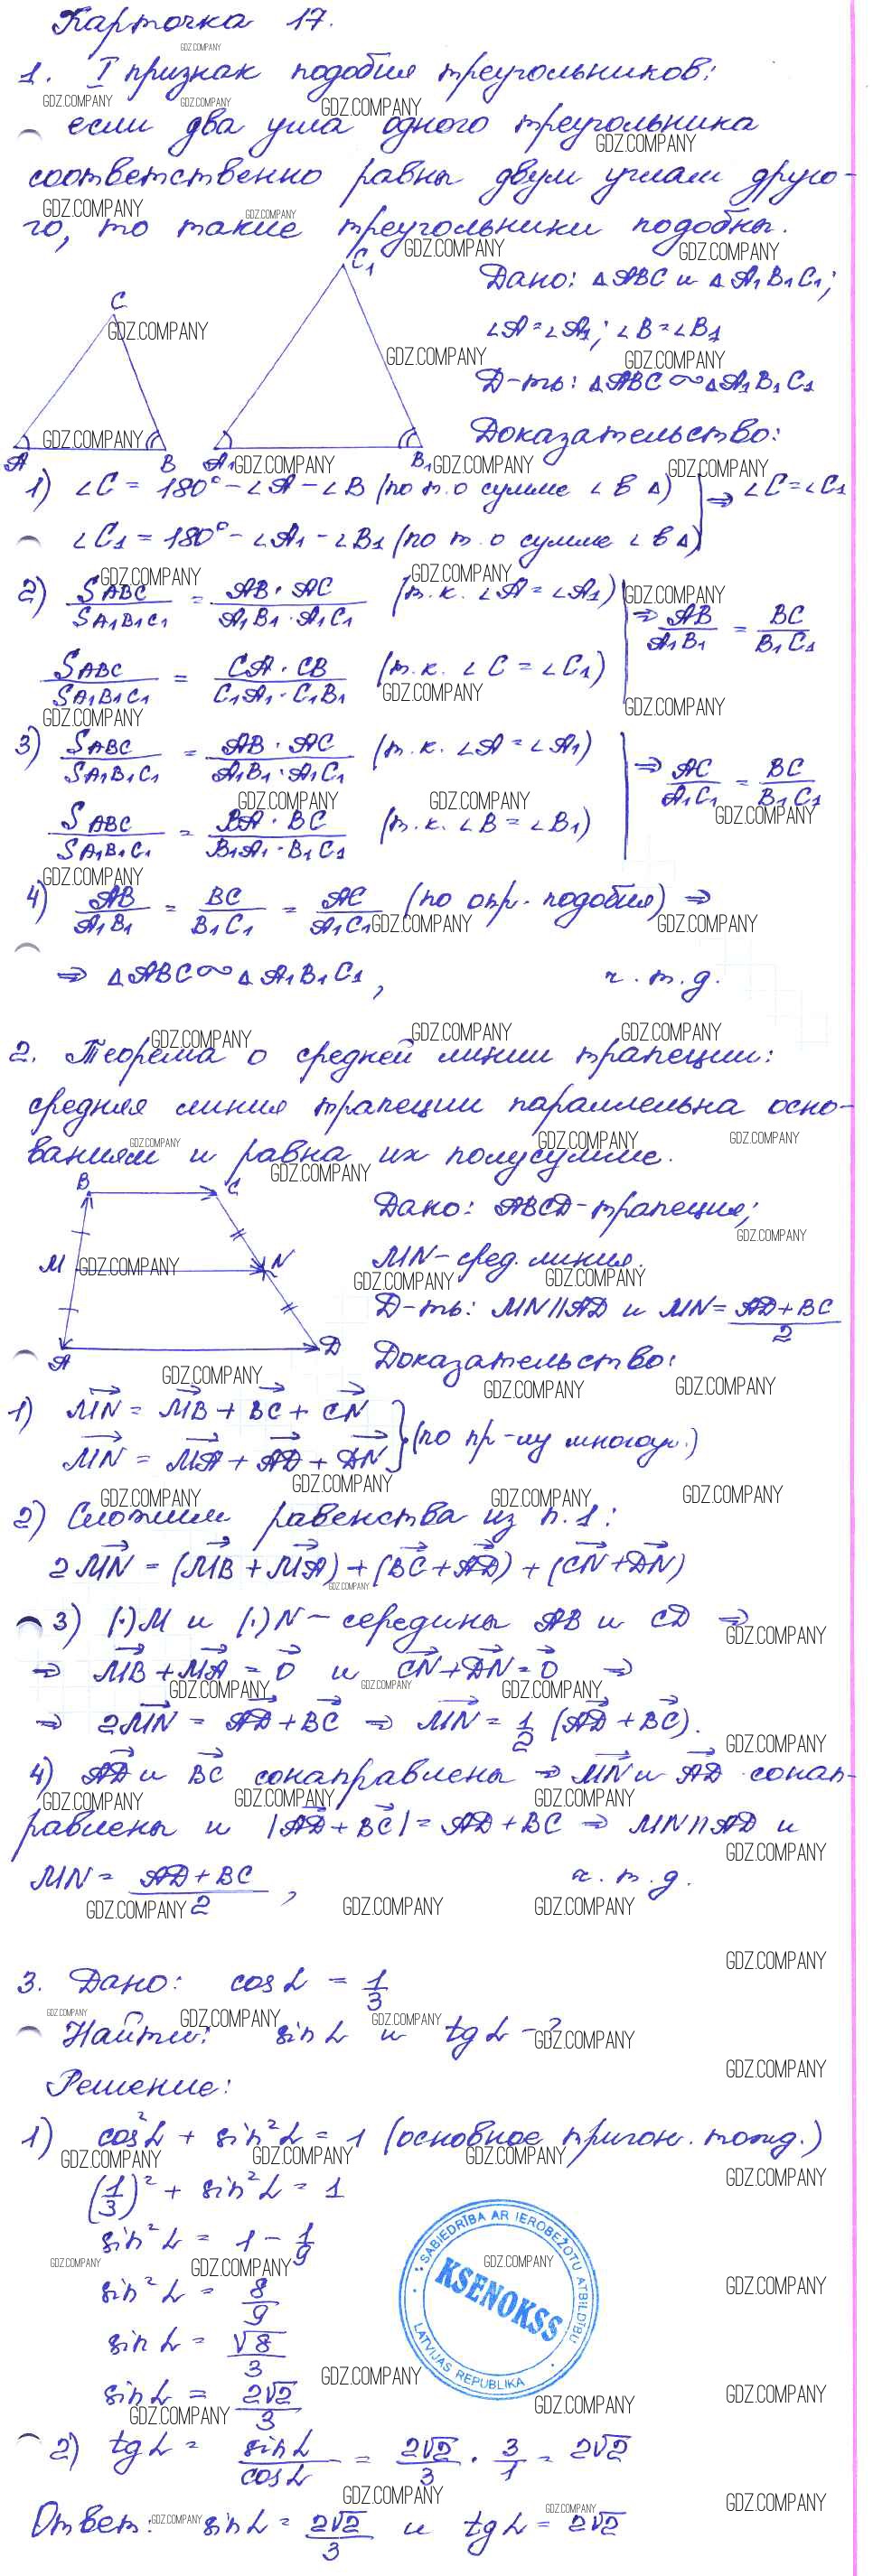 Карточка 17.
1. I признак подобия треугольников:
если два угла одного треугольника
соответственно равны двум углам друго-
го, то такие треугольники подобны.
Дано: △ABC и △A₁B₁C₁;
∠A = ∠A₁; ∠B = ∠B₁
Д-ть: △ABC ∾ △A₁B₁C₁
Доказательство:
C
C₁
A B A₁ B₁
1) ∠C = 180° - ∠A - ∠B (по т. о сумме ∠ в △)
∠C₁ = 180° - ∠A₁ - ∠B₁ (по т. о сумме ∠ в △)
⇒ ∠C = ∠C₁
2) S ABC / S A₁B₁C₁ = AB · AC / A₁B₁ · A₁C₁ (т.к. ∠A = ∠A₁)
S ABC / S A₁B₁C₁ = CA · CB / C₁A₁ · C₁B₁ (т.к. ∠C = ∠C₁)
⇒ AB / A₁B₁ = BC / B₁C₁
3) S ABC / S A₁B₁C₁ = AB · AC / A₁B₁ · A₁C₁ (т.к. ∠A = ∠A₁)
S ABC / S A₁B₁C₁ = BA · BC / B₁A₁ · B₁C₁ (т.к. ∠B = ∠B₁)
⇒ AC / A₁C₁ = BC / B₁C₁
4) AB / A₁B₁ = BC / B₁C₁ = AC / A₁C₁ (по опр. подобия) ⇒
⇒ △ABC ∾ △A₁B₁C₁, ч.т.д.
2. Теорема о средней линии трапеции:
средняя линия трапеции параллельна осно-
ваниям и равна их полусумме.
B C
M N
A D
Дано: ABCD - трапеция;
MN - сред. линия.
Д-ть: MN || AD и MN = AD + BC / 2
Доказательство:
1) MN = MB + BC + CN
MN = MA + AD + DN
(по пр-лу многоуг.)
2) Сложим равенства из п.1:
2MN = (MB + MA) + (BC + AD) + (CN + DN)
3) (·) M и (·) N - середины AB и CD ⇒
⇒ MB + MA = 0 и CN + DN = 0 ⇒
⇒ 2MN = AD + BC ⇒ MN = 1/2 (AD + BC).
4) AD и BC сонаправлены ⇒ MN и AD сонап-
равлены и |AD + BC| = AD + BC ⇒ MN || AD и
MN = AD + BC / 2, ч.т.д.
3. Дано: cos α = 1/3
Найти: sin α и tg α - ?
Решение:
1) cos² α + sin² α = 1 (основное тригон. тожд.)
(1/3)² + sin² α = 1
sin² α = 1 - 1/9
sin² α = 8/9
sin α = √8/3
sin α = 2√2/3
2) tg α = sin α / cos α = 2√2/3 · 3/1 = 2√2
Ответ: sin α = 2√2/3 и tg α = 2√2
SABIEDRĪBA AR IEROBEŽOTU ATBILDĪBU
KSENOKSS
LATVIJAS REPUBLIKA
GDZ.COMPANY